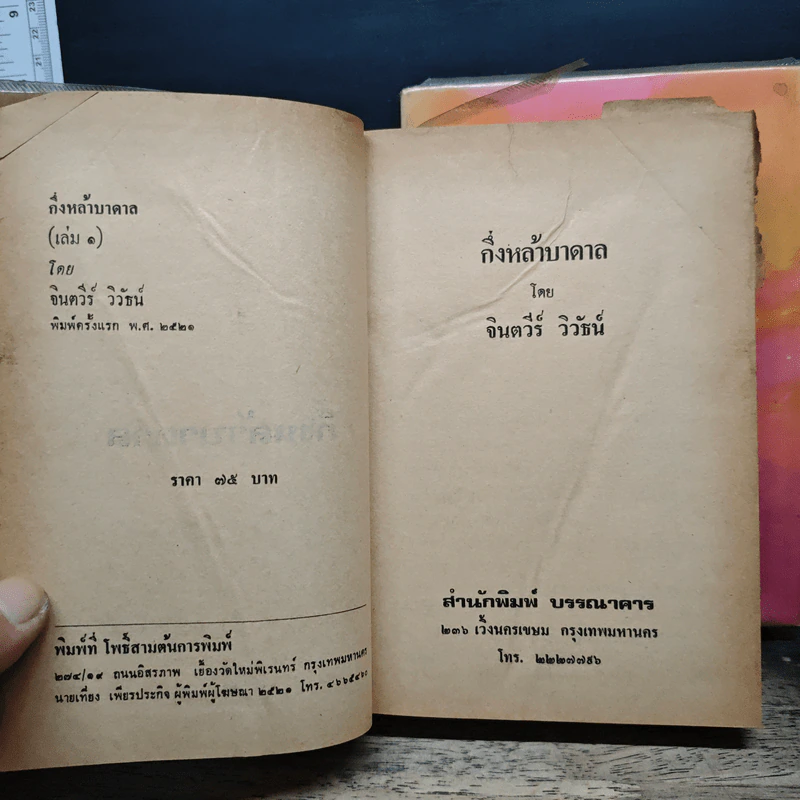 กึ่งหล้าบาดาล
(เล่ม ๑)
โดย
จินตวีร์ วิวัธน์
พิมพ์ครั้งแรก พ.ศ. ๒๕๒๑
ราคา ๗๕ บาท
พิมพ์ที่ โพธิ์สามต้นการพิมพ์
๒๗๔/๑๙ ถนนอิสรภาพ เยื้องวัดใหม่พิเรนทร์ กรุงเทพมหานคร
นายเที่ยง เพียรประกิจ ผู้พิมพ์ผู้โฆษณา ๒๕๒๑ โทร. ๔๖๖๕๔๖๐
กึ่งหล้าบาดาล
โดย
จินตวีร์ วิวัธน์
สำนักพิมพ์ บรรณาคาร
๒๓๖ เวิ้งนครเขษม กรุงเทพมหานคร
โทร. ๒๒๒๗๗๙๖
9
23
22
21